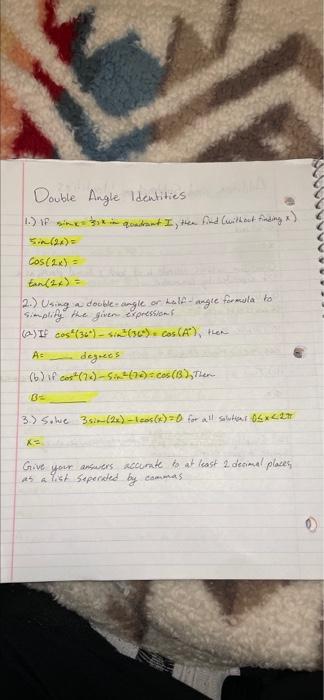 Double Angle Identities
1.) If sinx = 1/3, x in quadrant I, then find (without finding x)
Sin(2x) =
Cos(2x) =
tan(2x) =
2.) Using a double-angle or half-angle formula to
simplify the given expressions
(a) If cos²(36°) - sin²(36°) = cos(A°), then
A= ____ degrees
(b) if cos²(7x) - Sin²(7x) = cos(B), Then
B= ____
3.) Solve 3sin(2x) - 1cos(x) = 0 for all solutions 0≤x<2π
x=
Give your answers accurate to at least 2 decimal places,
as a list seperated by commas